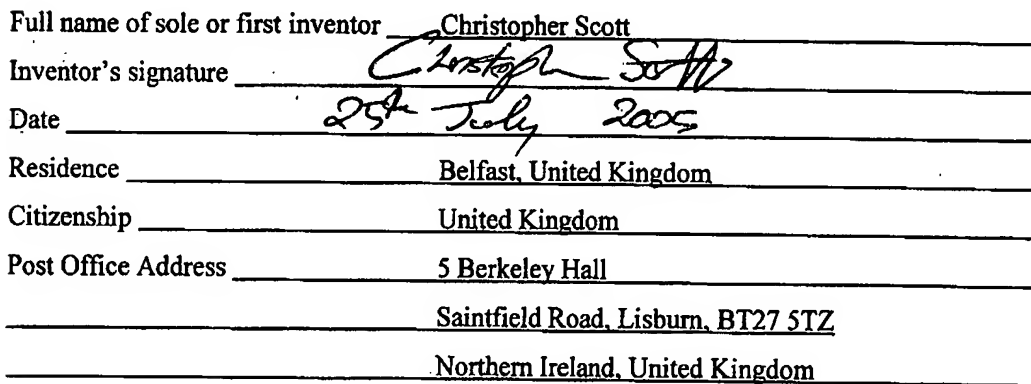 Full name of sole or first inventor Christopher Scott
Inventor's signature Christoph Scott
Date 25th July 2005
Residence Belfast, United Kingdom
Citizenship United Kingdom
Post Office Address 5 Berkeley Hall
Saintfield Road, Lisburn, BT27 5TZ
Northern Ireland, United Kingdom